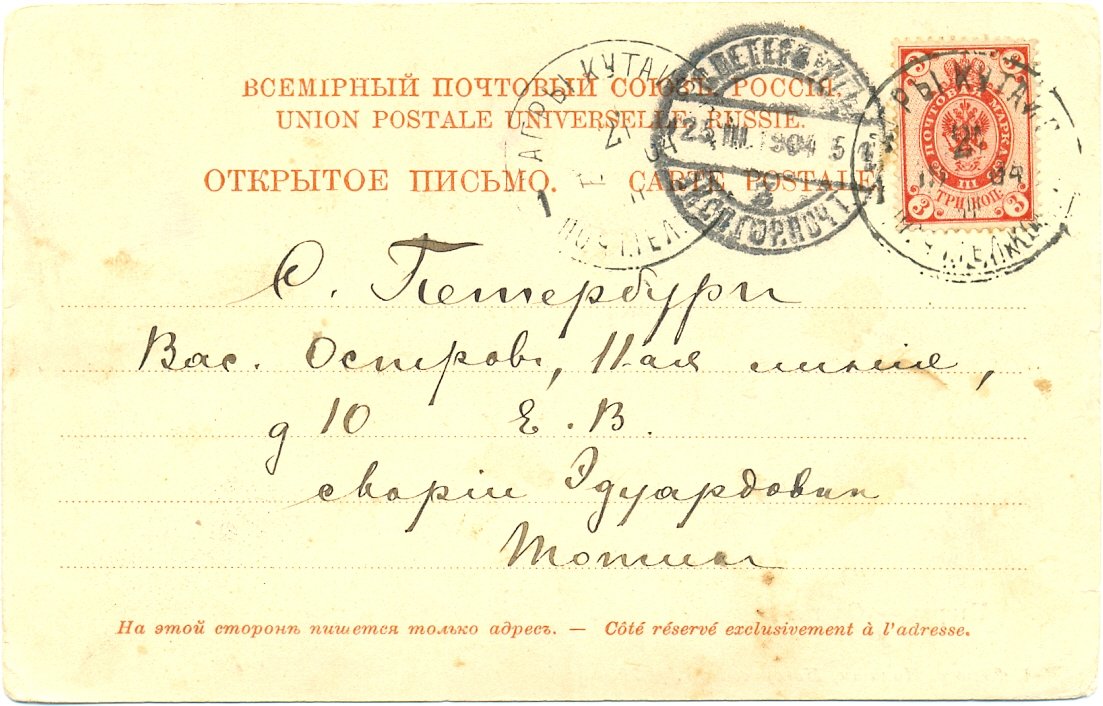 ВСЕМІРНЫЙ ПОЧТОВЫЙ СОЮЗЪ. РОССІЯ.
UNION POSTALE UNIVERSELLE. RUSSIE.
ОТКРЫТОЕ ПИСЬМО. — CARTE POSTALE
АГАРЫ КУТАИС
1
ПОЧ.ТЕЛ.
С.ПЕТЕРБУРГЪ
25.III.1904 5
2
ГОР.ПОЧТ.
АГАРЫ КУТАИС
21
04
ПОЧТОВАЯ МАРКА
3 3
III
ТРИ КОП.
3 3
С. Петербургъ
Вас. Островъ, 11-ая линія,
д 10 Е. В.
Маріи Эдуардовнѣ
На этой сторонѣ пишется только адресъ. — Côté réservé exclusivement à l'adresse.